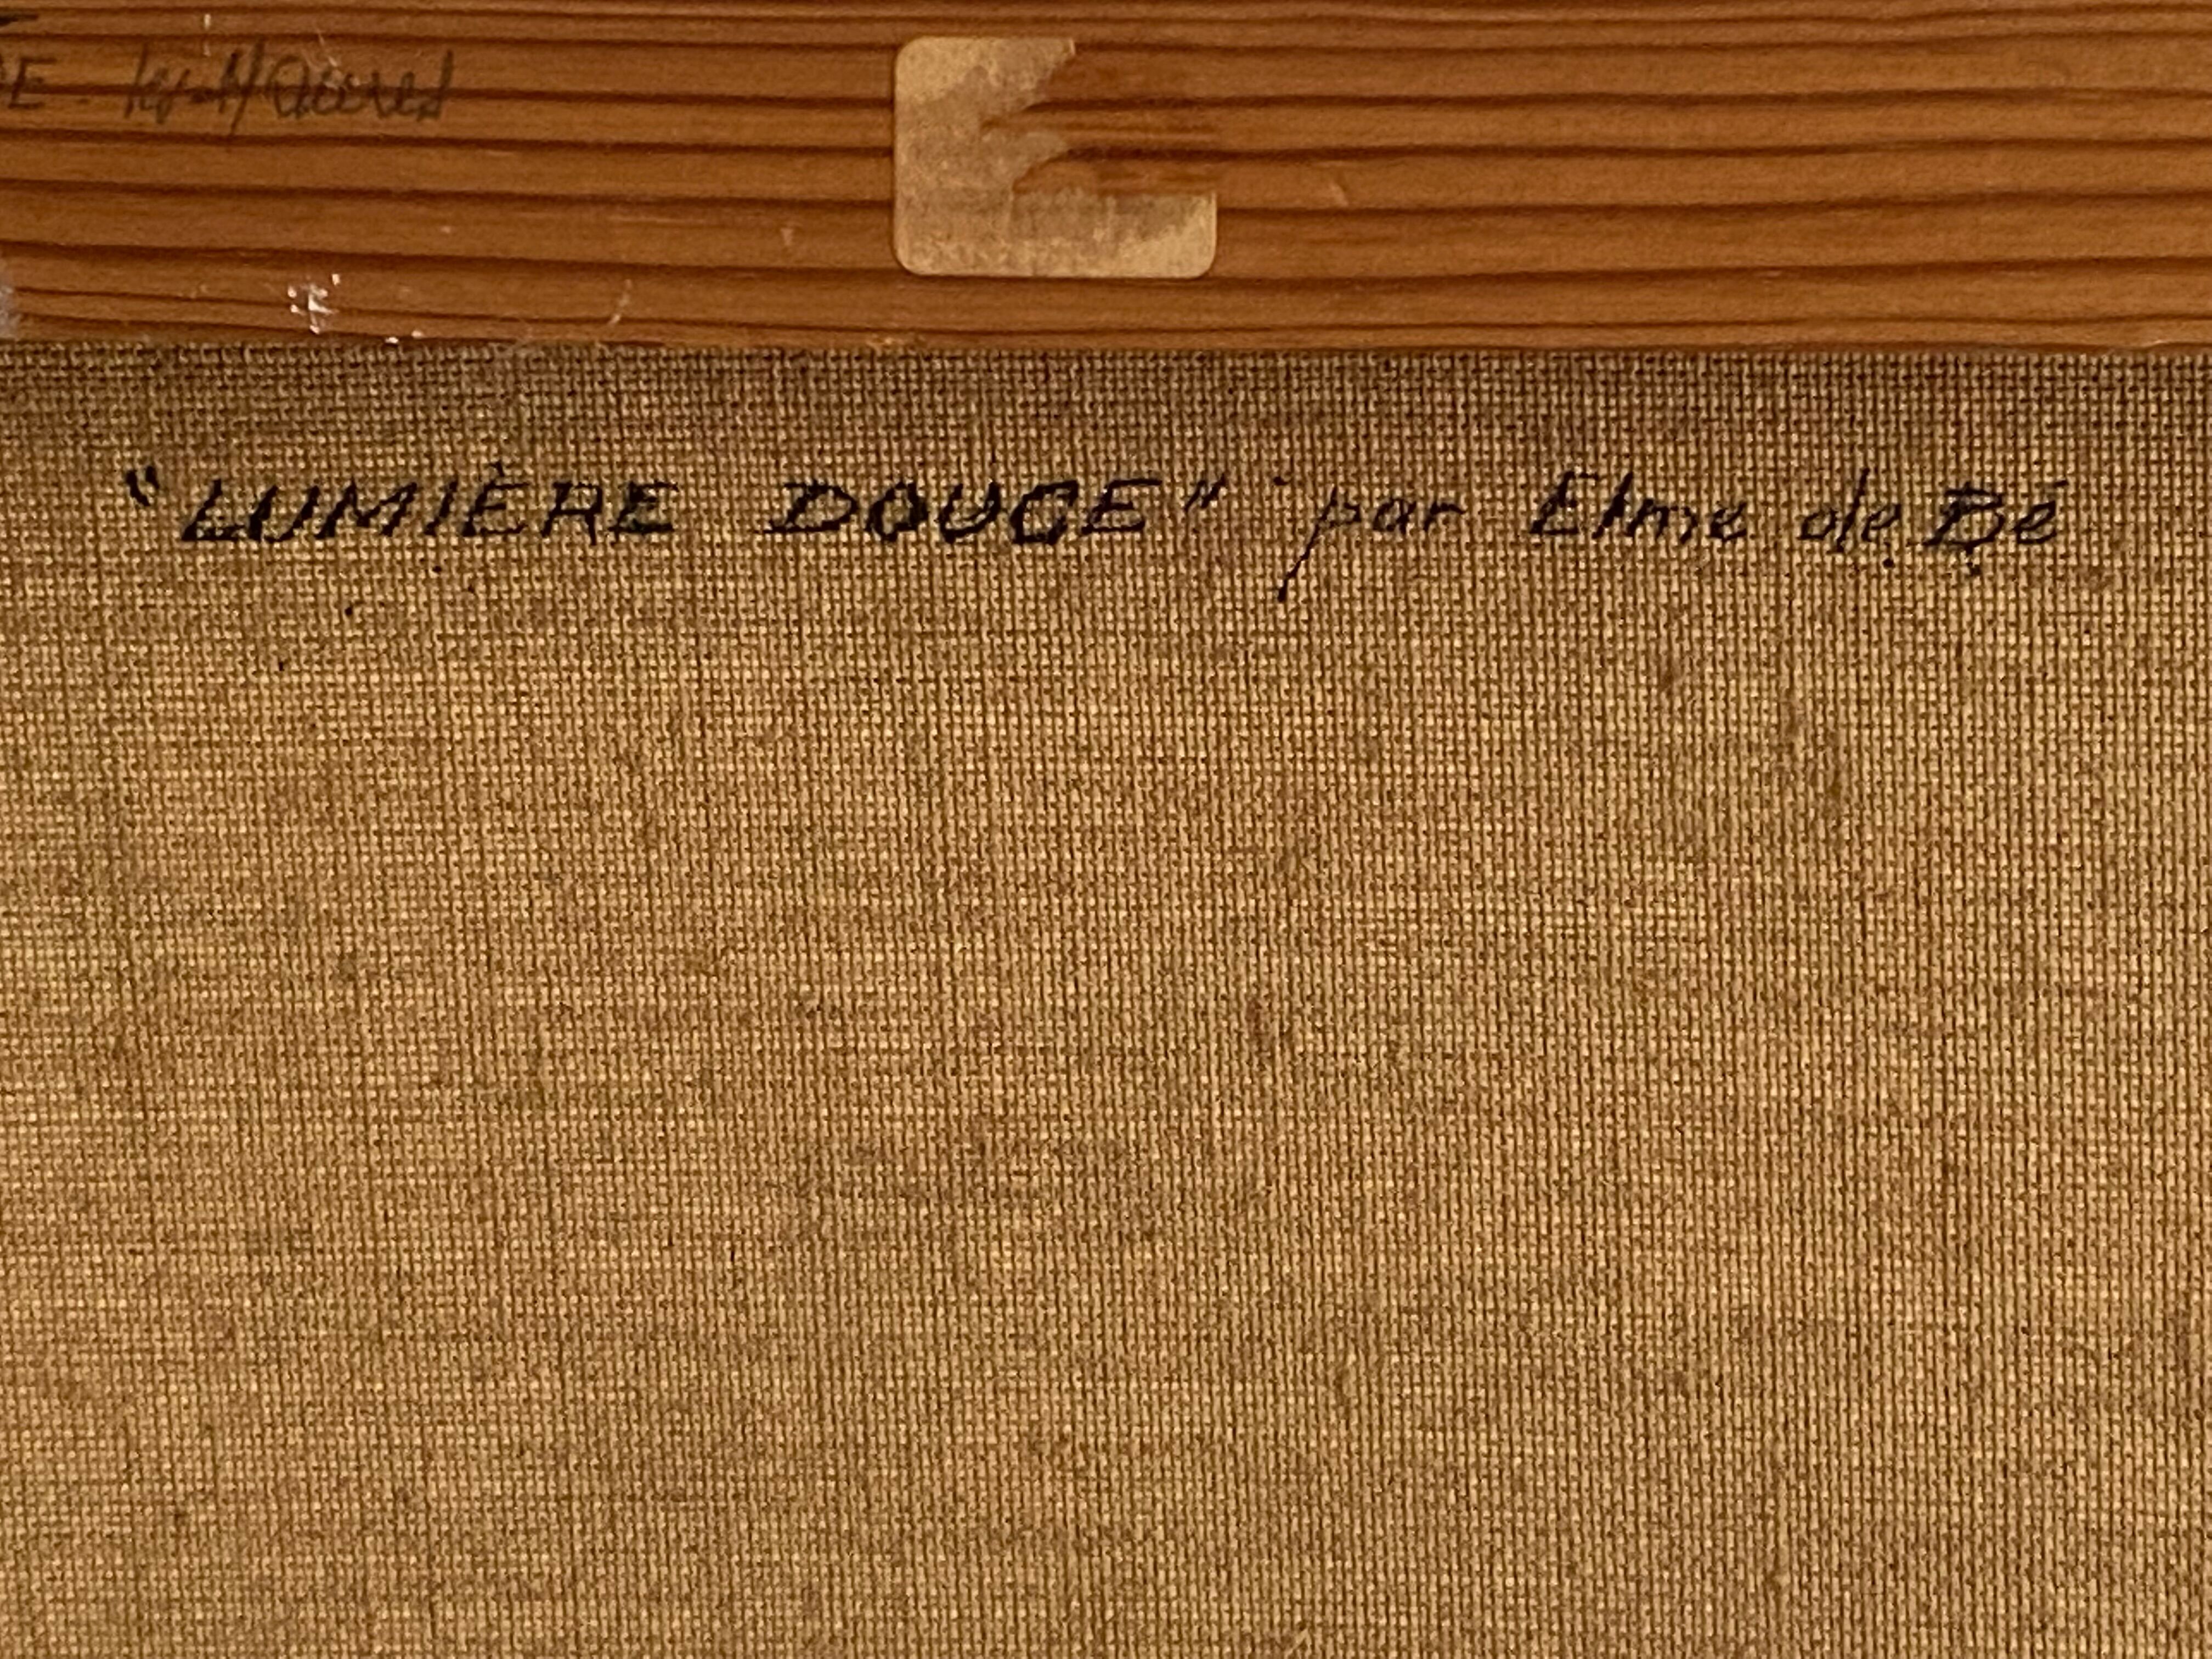 "LUMIÈRE DOUCE" par Elme de Bé